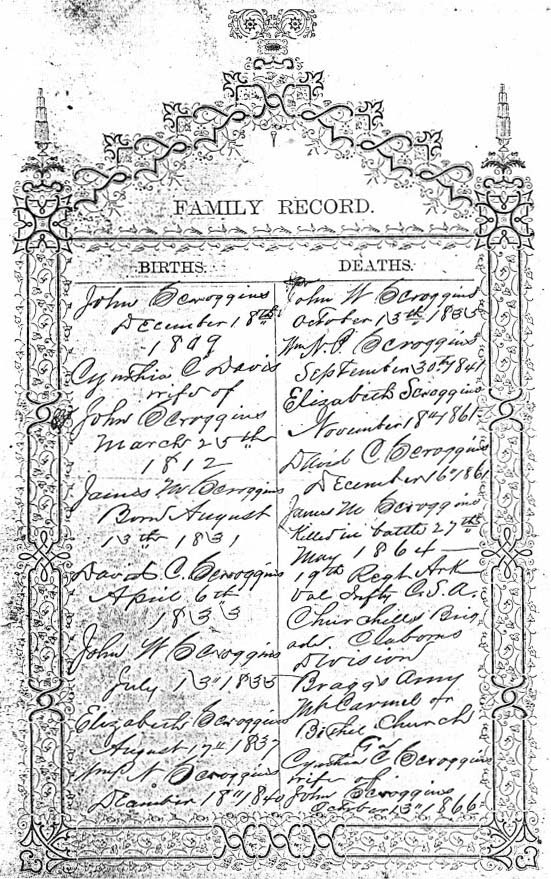 FAMILY RECORD.
BIRTHS.
John Scroggins
December 18th
1809
Cynthia C Davis
wife of
John Scroggins
March 25th
1812
James M Scroggins
Born August
13th 1831
David C. Scroggins
April 6th
1833
John W Scroggins
July 13" 1835
Elizabeth Scroggins
August 17" 1837
N Scroggins
December 18" 1840
DEATHS.
John W Scroggins
October 13th 1835
Wm N. P. Scroggins
September 30th 1841
Elizabeth Scroggins
November 18" 1861
David C. Scroggins
December 16" 1861
James M Scroggins
Killed in battle 27th
May 1864
19th Regt Ark
Vol Infty C.S.A.
Churchills Brig
ade Claborns
Division
Braggs Army
Mt Carmel or
Bethel Church
Ga
Cynthia C Scroggins
wife of
John Scroggins
October 13" 1866